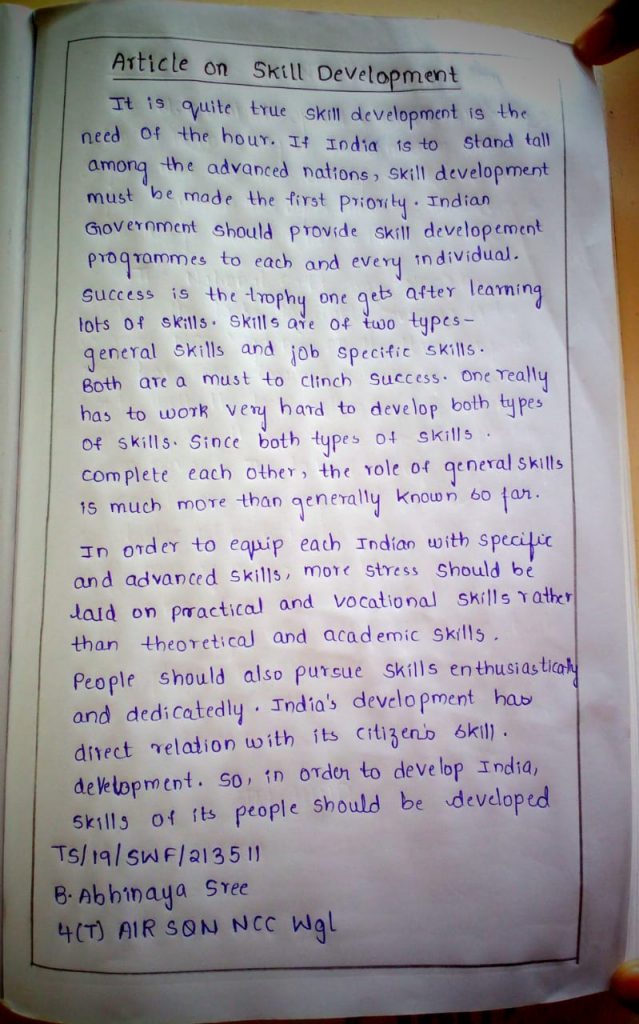 Article on Skill Development
It is quite true skill development is the
need of the hour. If India is to stand tall
among the advanced nations, skill development
must be made the first priority. Indian
Government should provide skill developement
programmes to each and every individual.
Success is the trophy one gets after learning
lots of skills. Skills are of two types-
general skills and job specific skills.
Both are a must to clinch success. one really
has to work very hard to develop both types
of skills. Since both types of skills.
complete each other, the role of general skills
is much more than generally known so far.
In order to equip each Indian with specific
and advanced skills, more stress should be
laid on practical and vocational skills rather
than theoretical and academic skills.
People should also pursue skills enthusiastically
and dedicatedly. India's development has
direct relation with its citizen's skill.
development. So, in order to develop India,
skills of its people should be developed
TS/19/SWF/213511
B. Abhinaya Sree
4(T) AIR SQN NCC Wgl